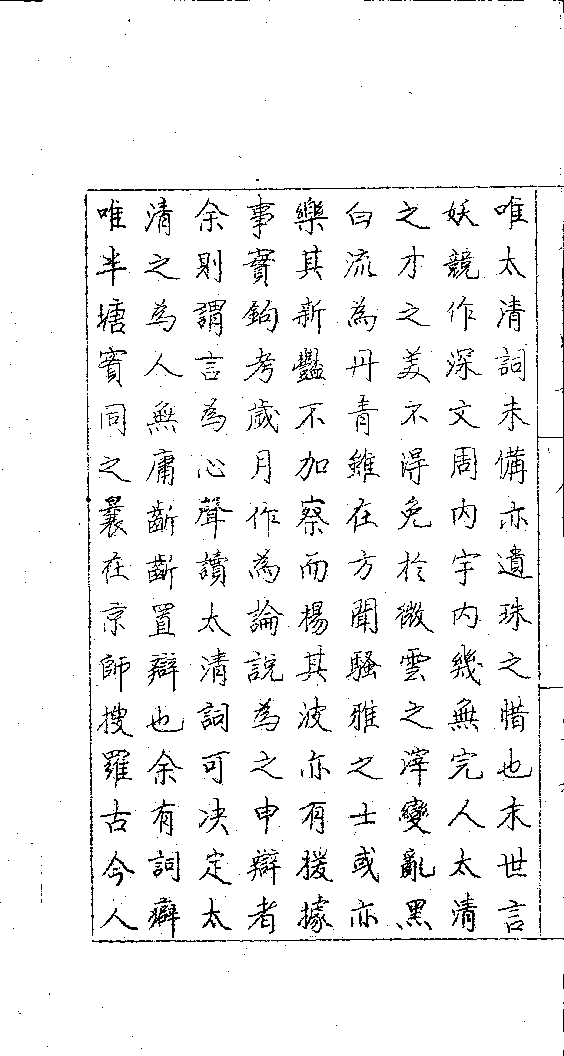 唯太清詞未備亦遺珠之惜也末世言
妖競作深文周内宇内幾無完人太清
之才之美不得免於微雲之滓變亂黑
白流為丹青雖在方聞騷雅之士或亦
樂其新豔不加察而揚其波亦有援據
事實鉤考歲月作為論說為之申辯者
余則謂言為心聲讀太清詞可決定太
清之為人無庸齗齗置辯也余有詞癖
唯半塘實同之曩在京師搜羅古今人